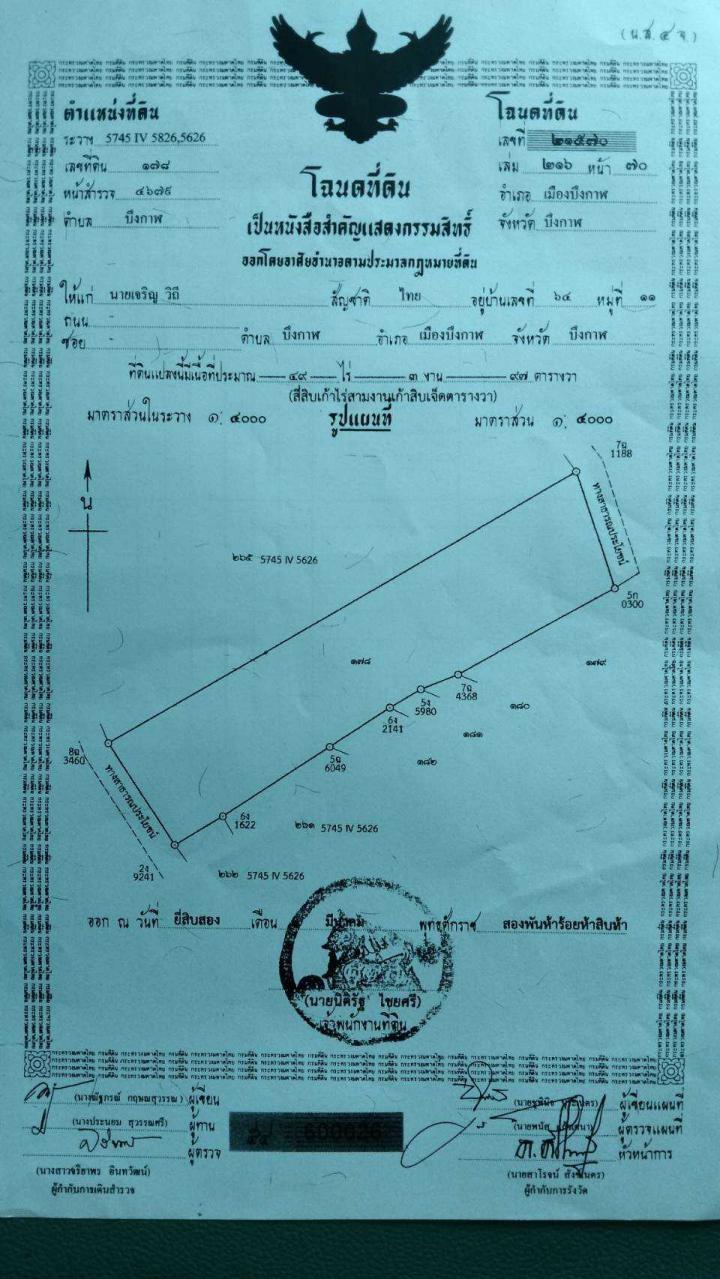 (น.ส.๔ จ)
ตำแหน่งที่ดิน
ระวาง 5745 IV 5826,5626
เลขที่ดิน ๑๗๘
หน้าสำรวจ ๔๖๗๙
ตำบล บึงกาฬ
โฉนดที่ดิน
เลขที่ ๒๑๕๗๐
เล่ม ๒๑๖ หน้า ๗๐
อำเภอ เมืองบึงกาฬ
จังหวัด บึงกาฬ
โฉนดที่ดิน
เป็นหนังสือสำคัญแสดงกรรมสิทธิ์
ออกโดยอาศัยอำนาจตามประมวลกฎหมายที่ดิน
ให้แก่ นายเจริญ วิถี สัญชาติ ไทย อยู่บ้านเลขที่ ๖๔ หมู่ที่ ๑๑
ถนน -
ซอย - ตำบล บึงกาฬ อำเภอ เมืองบึงกาฬ จังหวัด บึงกาฬ
ที่ดินแปลงนี้มีเนื้อที่ประมาณ ๔๙ ไร่ ๓ งาน ๙๗ ตารางวา
(สี่สิบเก้าไร่สามงานเก้าสิบเจ็ดตารางวา)
มาตราส่วนในระวาง ๑:๔๐๐๐ รูปแผนที่ มาตราส่วน ๑:๔๐๐๐
7ฉ
1188
น
ทางสาธารณประโยชน์
๒๖๕ 5745 IV 5626
5ก
0300
๑๗๘
๑๗๙
7ฉ
4368
5ง
5980
๑๘๐
6ง
2141
๑๘๑
5ฉ
6049
๑๘๒
8ฉ
3460
ทางสาธารณประโยชน์
6ง
1622
๒๖๑ 5745 IV 5626
2ง
9241
๒๖๒ 5745 IV 5626
ออก ณ วันที่ ยี่สิบสอง เดือน มีนาคม พุทธศักราช สองพันห้าร้อยห้าสิบห้า
(นายนิติรัฐ ไชยศรี)
เจ้าพนักงานที่ดิน
กฤษณสุวรรณ) ผู้เขียน
(นางประนยม สุวรรณศรี) ผู้ทาน
ผู้ตรวจ
(นางสาวจริยาพร อินทวัฒน์)
ผู้กำกับการเดินสำรวจ
ผู้เขียนแผนที่
ผู้ตรวจแผนที่
หัวหน้าการ
(นายสาโรจน์
ผู้กำกับการรังวัด